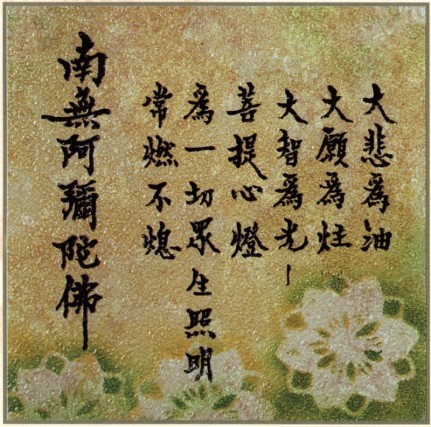 大悲為油
大願為炷
大智為光
菩提心燈
為一切眾生照明
常燃不熄
南無阿彌陀佛